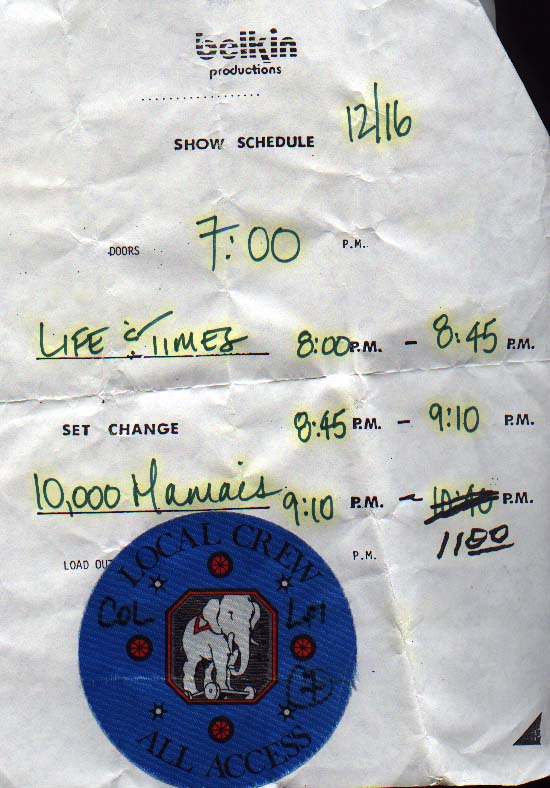 belkin
productions
SHOW SCHEDULE 12/16
DOORS 7:00 P.M.
LIFE & TIMES 8:00 P.M. - 8:45 P.M.
SET CHANGE 8:45 P.M. - 9:10 P.M.
10,000 Maniacs 9:10 P.M. - 10:40 P.M.
1100
LOAD OUT P.M.
LOCAL CREW
COL
ALL ACCESS